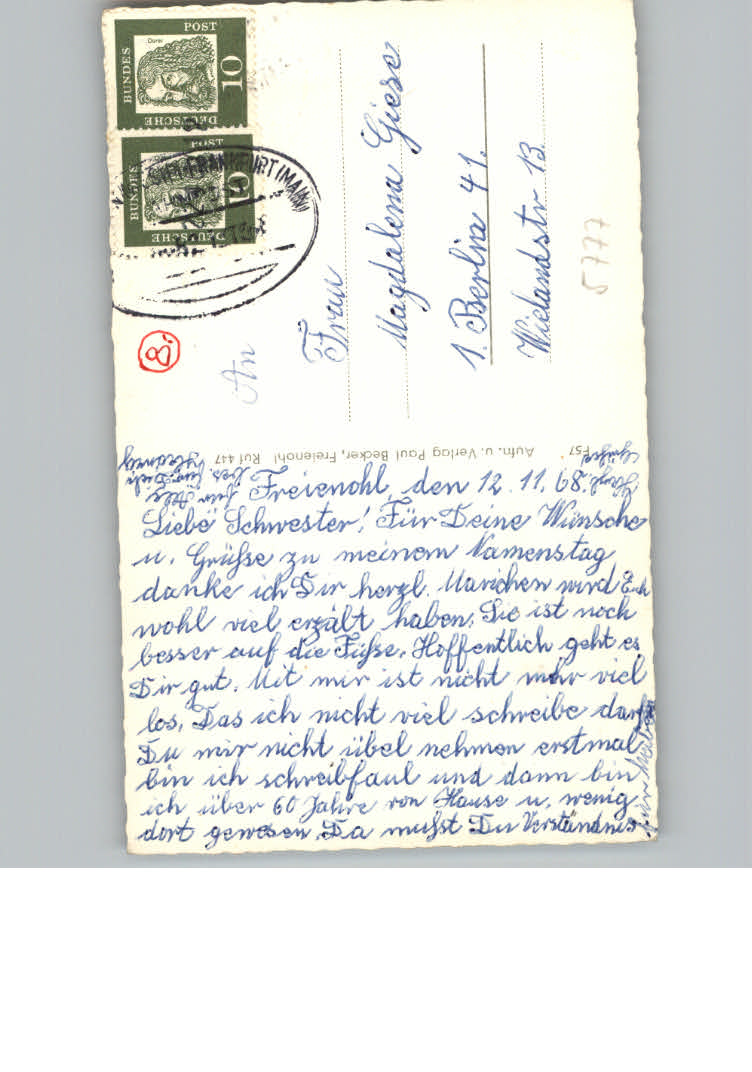 Freienohl, den 12. 11. 68.
Liebe Schwester! Für Deine Wünsche
u. Grüße zu meinem Namenstag
danke ich Dir herzl. Marichen wird Euch
wohl viel erzält haben. Sie ist noch
besser auf die Füße. Hoffentlich geht es
Dir gut. Mit mir ist nicht mehr viel
los. Das ich nicht viel schreibe darfst
Du mir nicht übel nehmen erstmal
bin ich schreibfaul und dann bin
ich über 60 Jahre von Hause u. wenig
dort gewesen. Da mußt Du Verständnis
für
Herzl. Grüße
für Alle
bes. für Dich
Hedwig
An
Frau
Magdalena Giese
1. Berlin 41.
Wielandstr 13
5777
8.
F57 Aufn. u. Verlag Paul Becker, Freienohl Ruf 447
DEUTSCHE BUNDESPOST
Dürer
10
DEUTSCHE BUNDESPOST
10
FRANKFURT (MAIN)